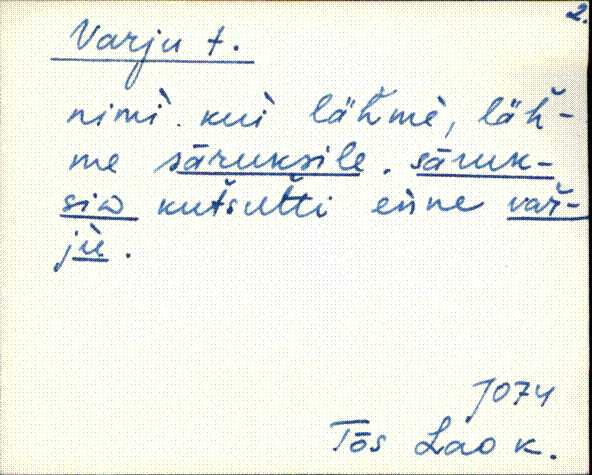 2.
Varju t.
nimì. kuì läh̆mè, läh̆-
me sāruksile. sāruk-
siɷ kutšutťi eǹne var̆-
jùᴇ̀.
J074
Tõs Lao k.